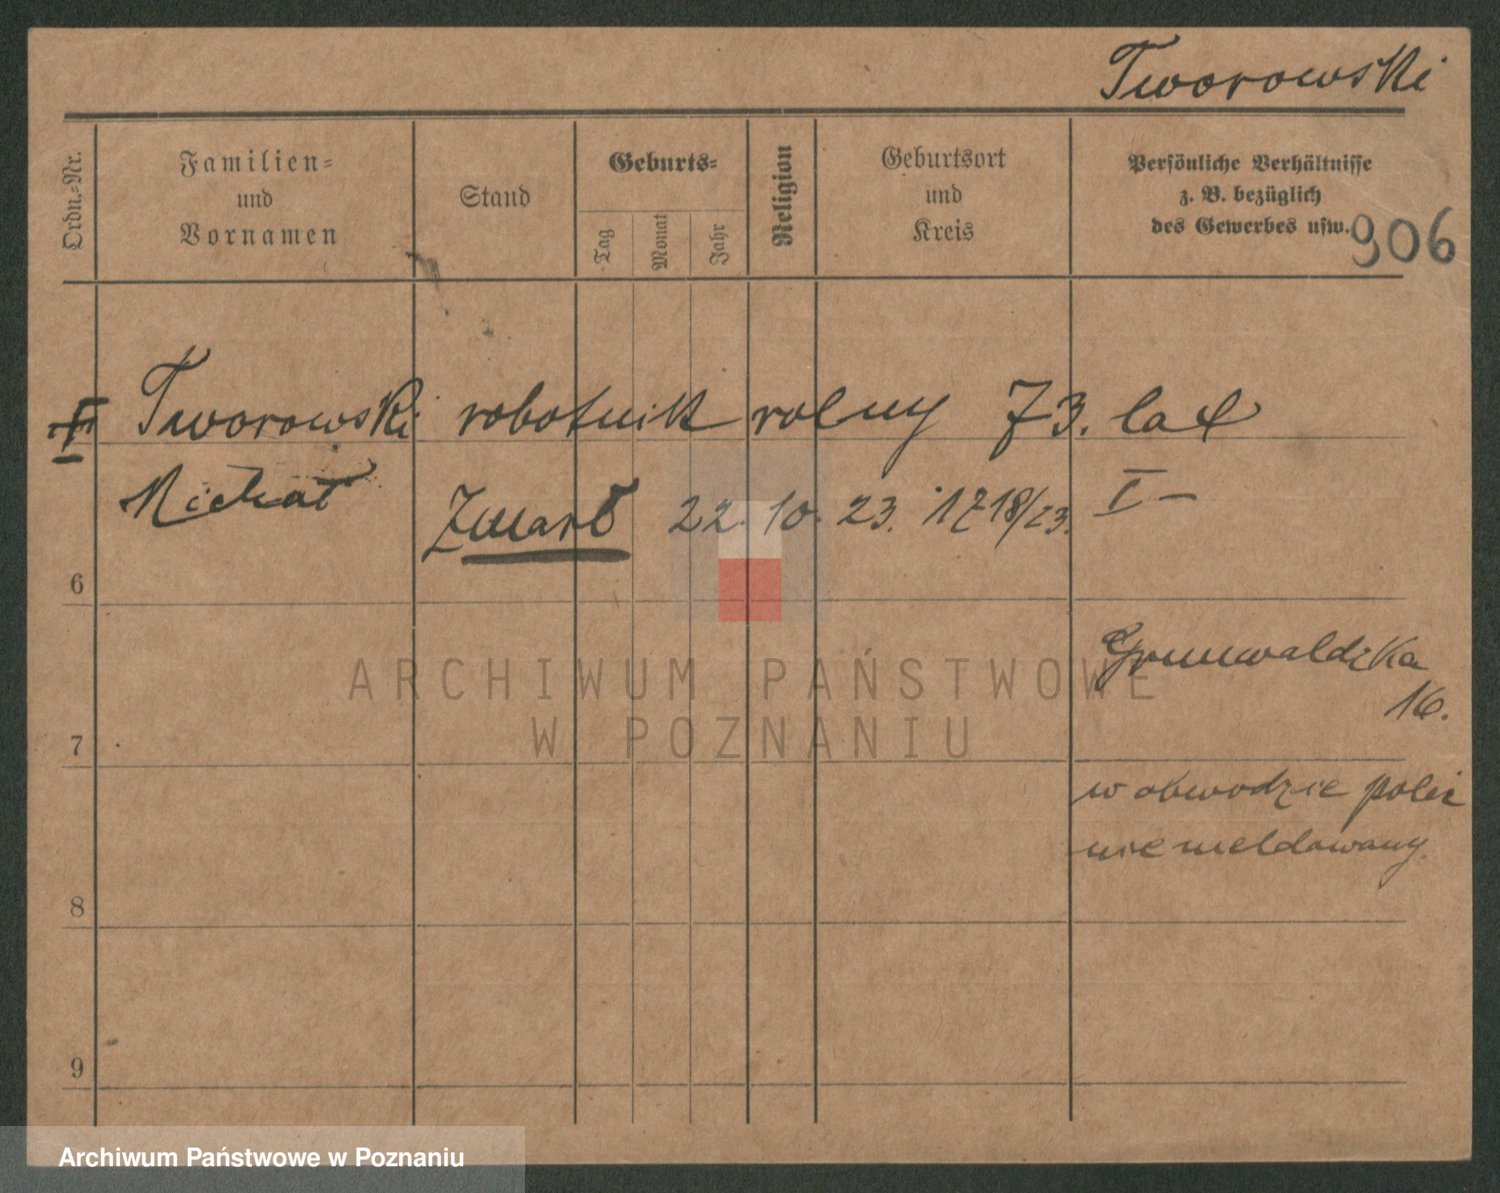 Tworowski
Ordn.-Nr.
Familien-
und
Vornamen
Stand
Geburts-
Tag
Monat
Jahr
Religion
Geburtsort
und
Kreis
Persönliche Verhältnisse
z. B. bezüglich
des Gewerbes usw.
906
Tworowski robotnik rolny 73. lat
Michał
Zmarł 22. 10. 23. 1718/23. I –
6
Grunwaldzka
16.
7
w obwodzie polic
nie meldowany.
8
9
ARCHIWUM PAŃSTWOWE
W POZNANIU
Archiwum Państwowe w Poznaniu